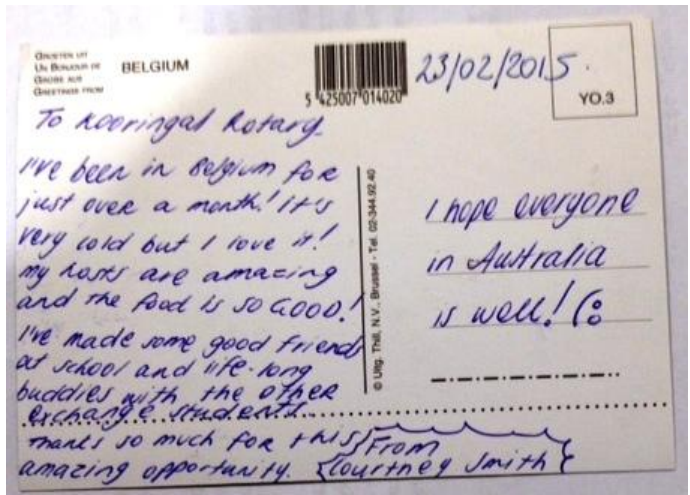 GROETEN UIT
UN BONJOUR DE
GRÜSSE AUS
GREETINGS FROM
BELGIUM
5 425007 014020
23/02/2015
YO.3
To Kooringal Rotary
I've been in Belgium for
just over a month! It's
very cold but I love it!
my hosts are amazing
and the food is so GOOD!
I've made some good friends
at school and life-long
buddies with the other
exchange students.
Thanks so much for this
amazing opportunity.
From
Courtney Smith
© Uitg. Thill, N.V., Brussel - Tel. 02-344.92.40
I hope everyone
in Australia
is well! (: